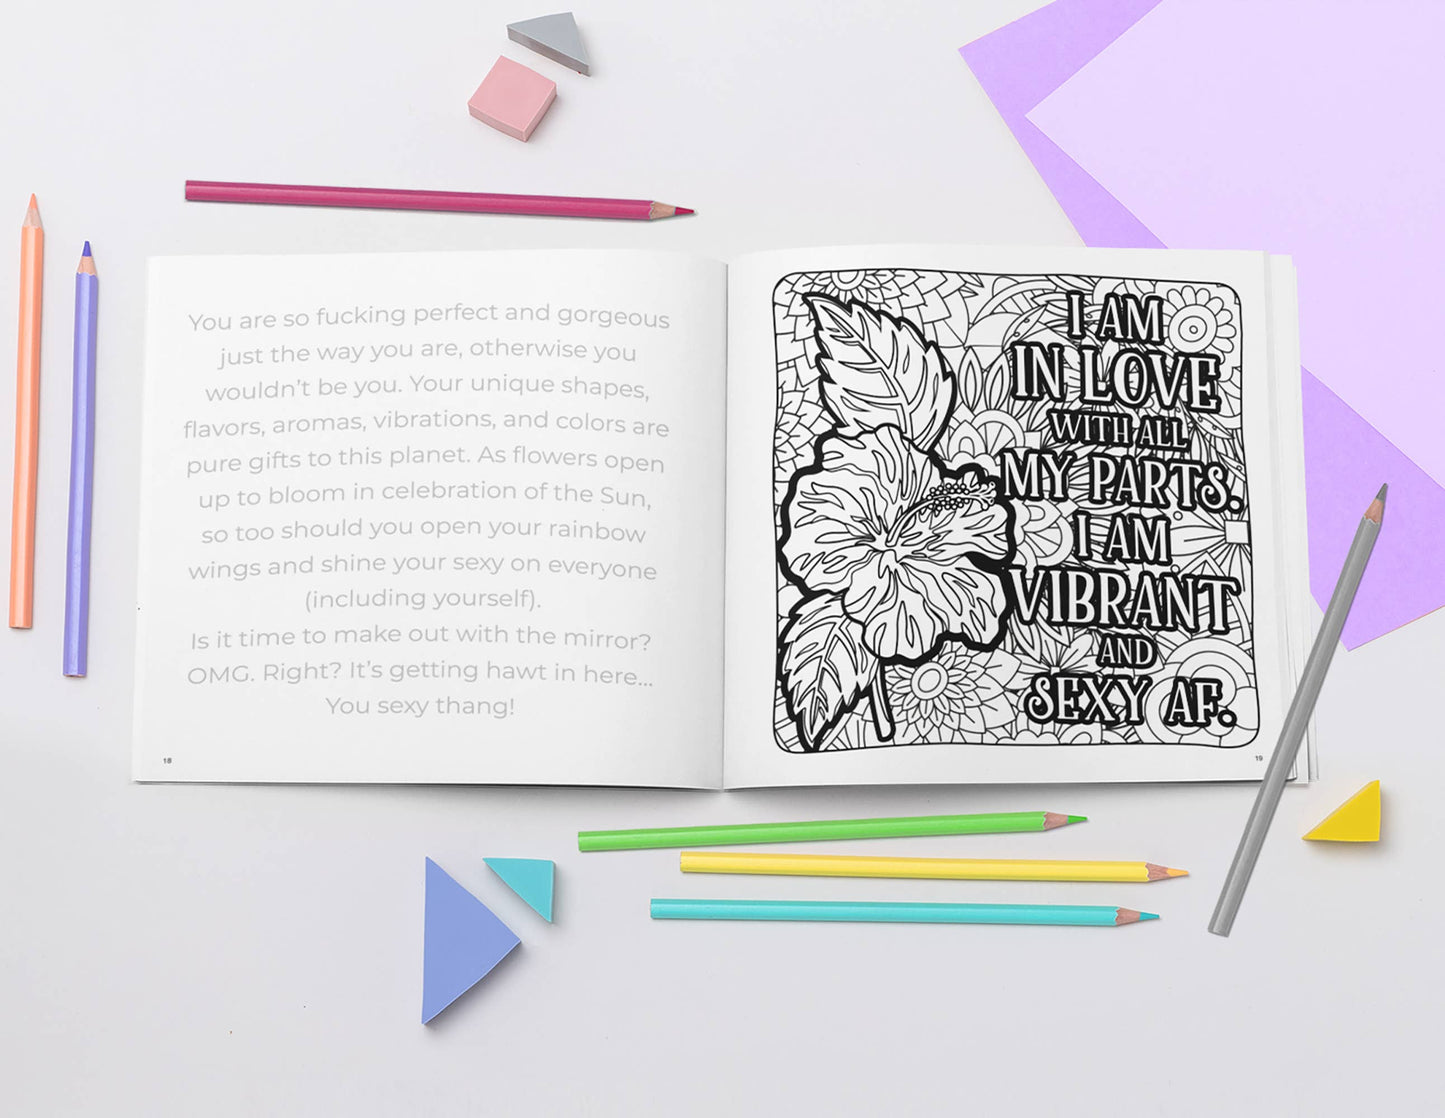 You are so fucking perfect and gorgeous
just the way you are, otherwise you
wouldn't be you. Your unique shapes,
flavors, aromas, vibrations, and colors are
pure gifts to this planet. As flowers open
up to bloom in celebration of the Sun,
so too should you open your rainbow
wings and shine your sexy on everyone
(including yourself).
Is it time to make out with the mirror?
OMG. Right? It's getting hawt in here...
You sexy thang!
18
I AM
IN LOVE
WITH ALL
MY PARTS.
I AM
VIBRANT
AND
SEXY AF.
19